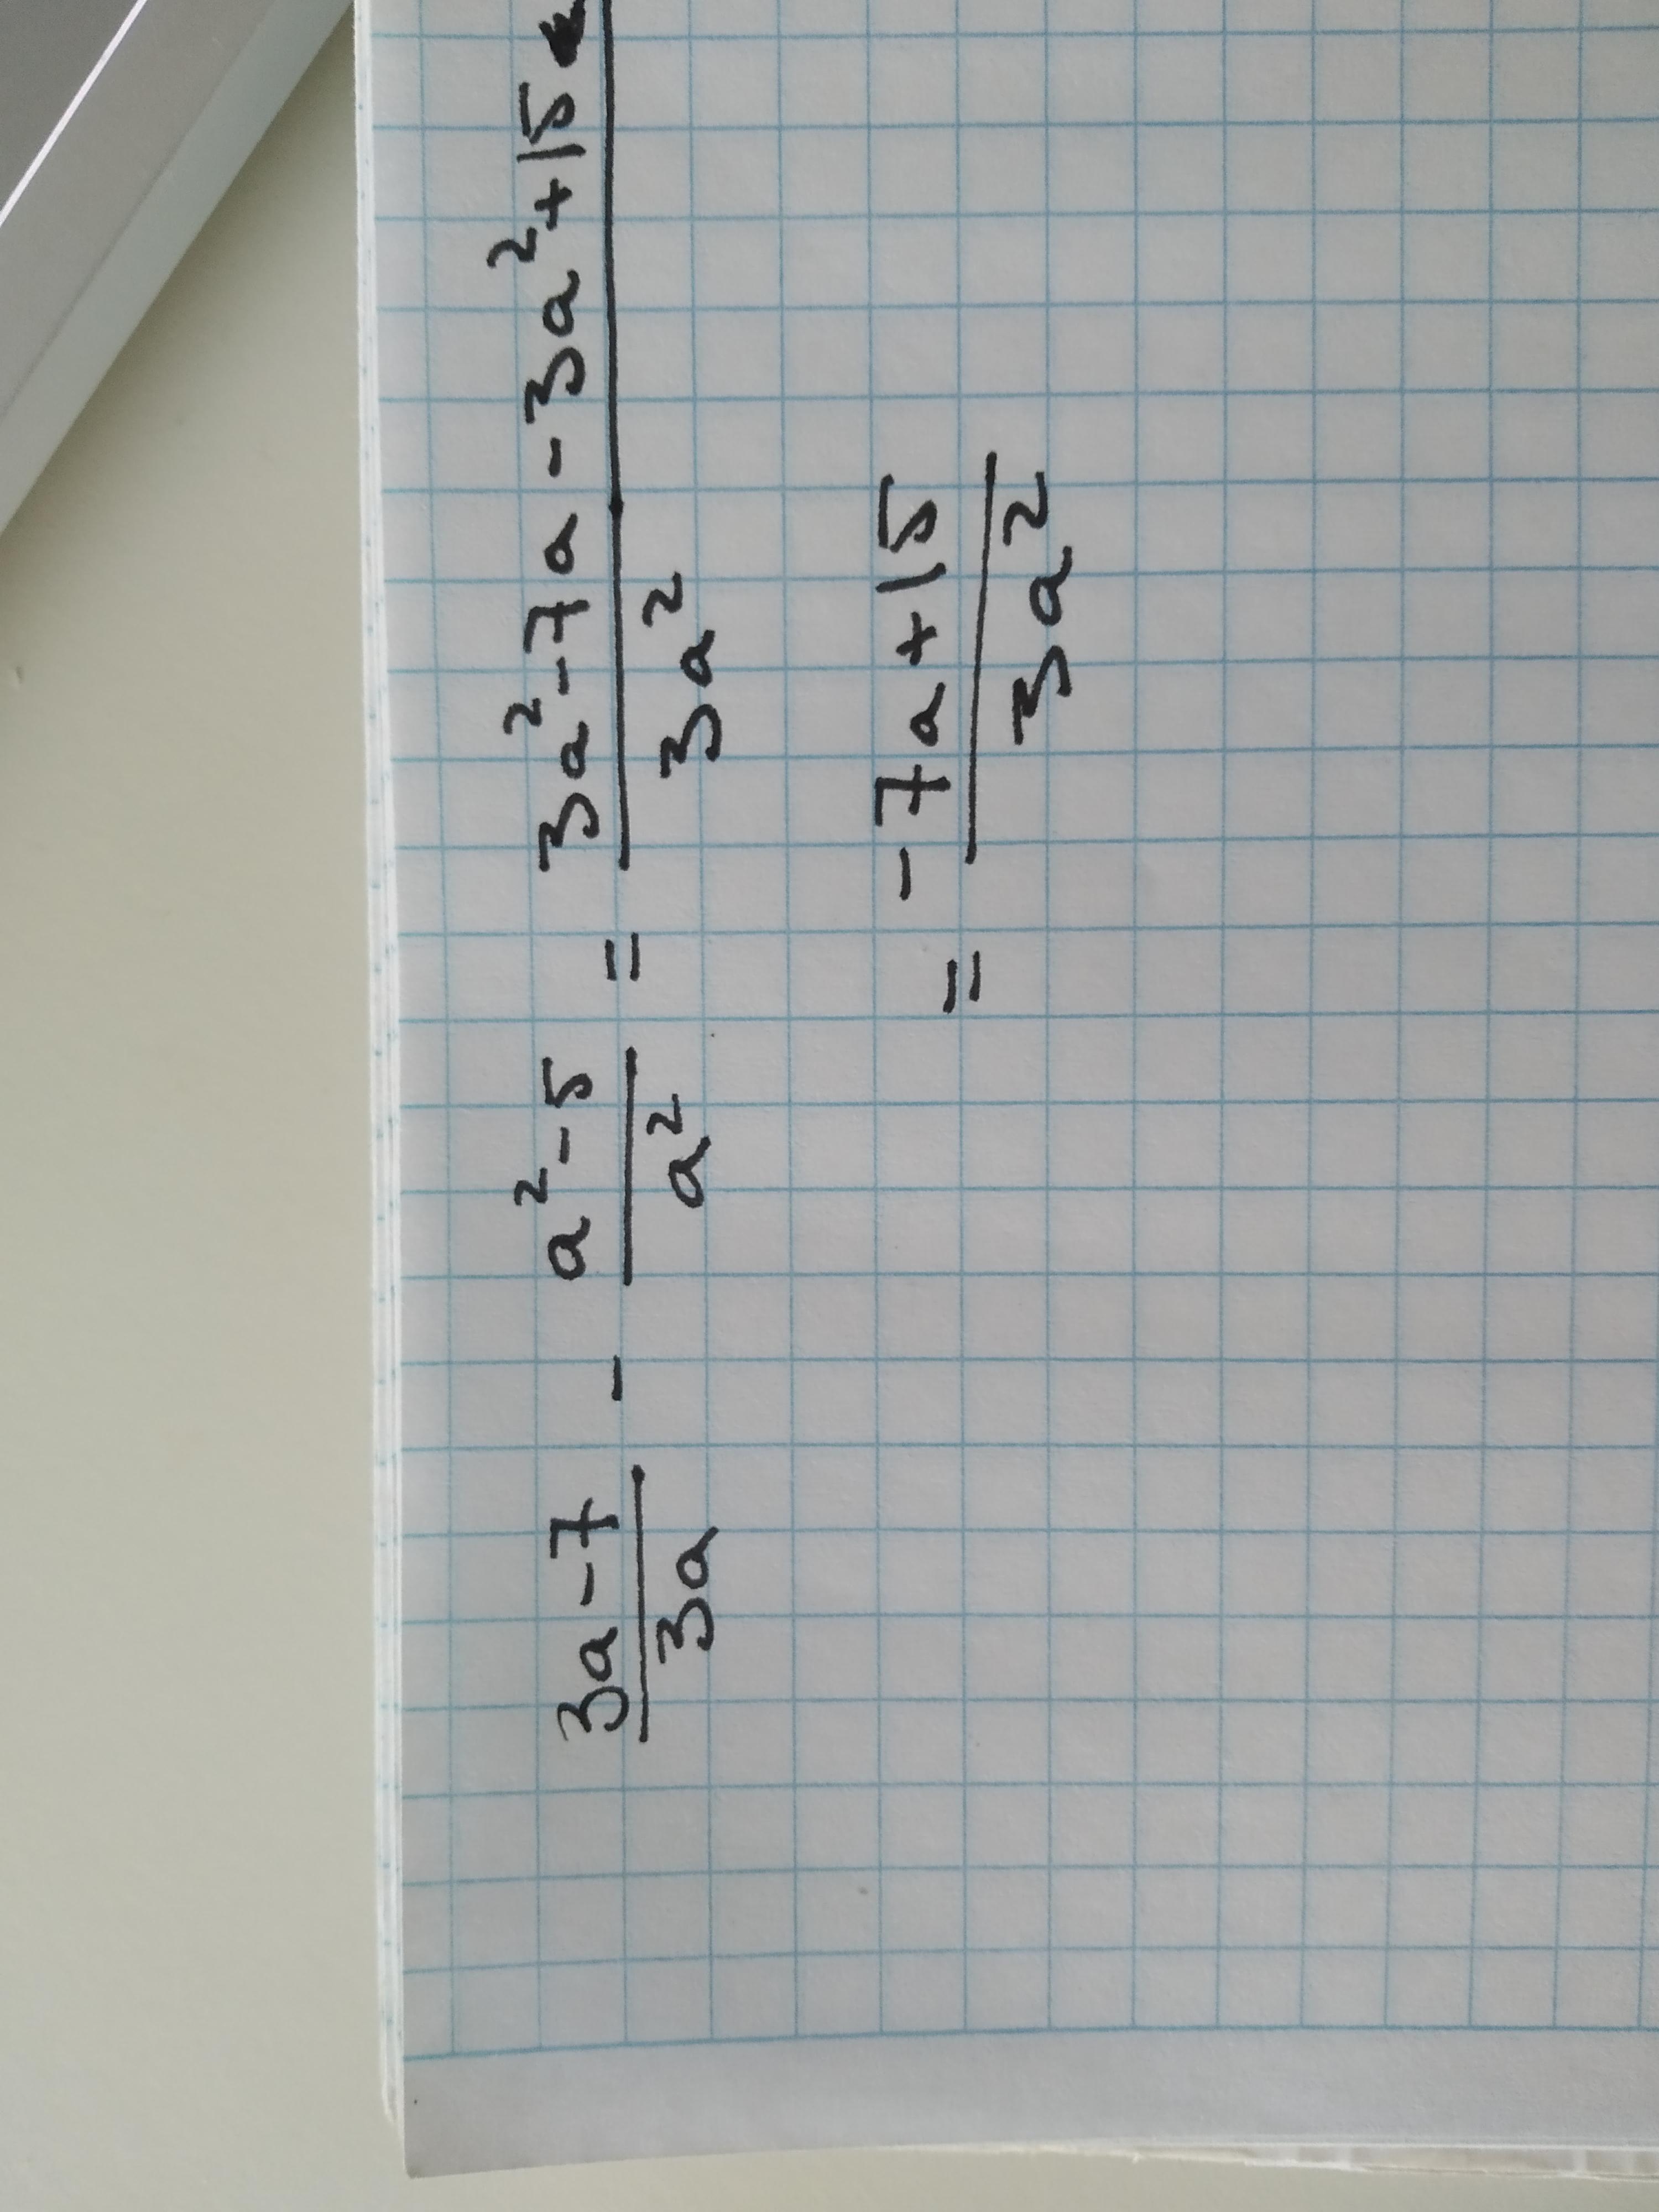 (3a-7)/(3a) - (a²-5)/(a²) = (3a²-7a-3a²+15)/(3a²)
= (-7a+15)/(3a²)